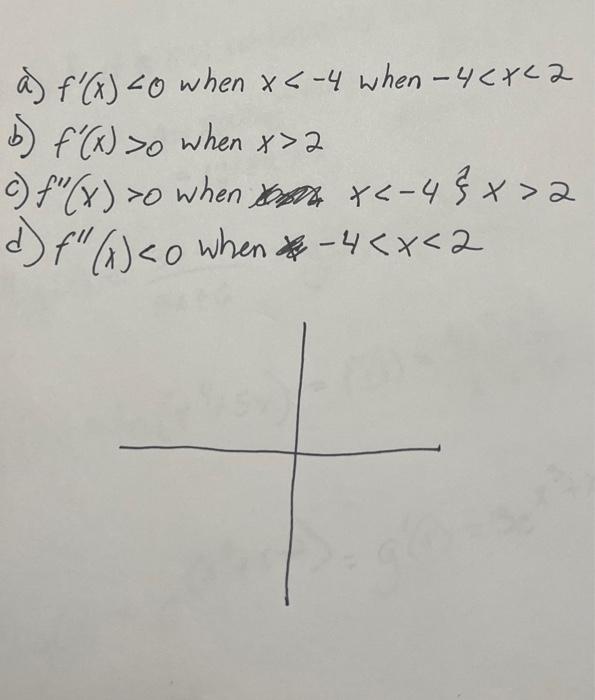 a) f'(x) <0 when x < -4 when -4<x<2
b) f'(x) >0 when x>2
c) f''(x) >0 when x<-4 & x > 2
d) f''(x) <0 when -4<x<2